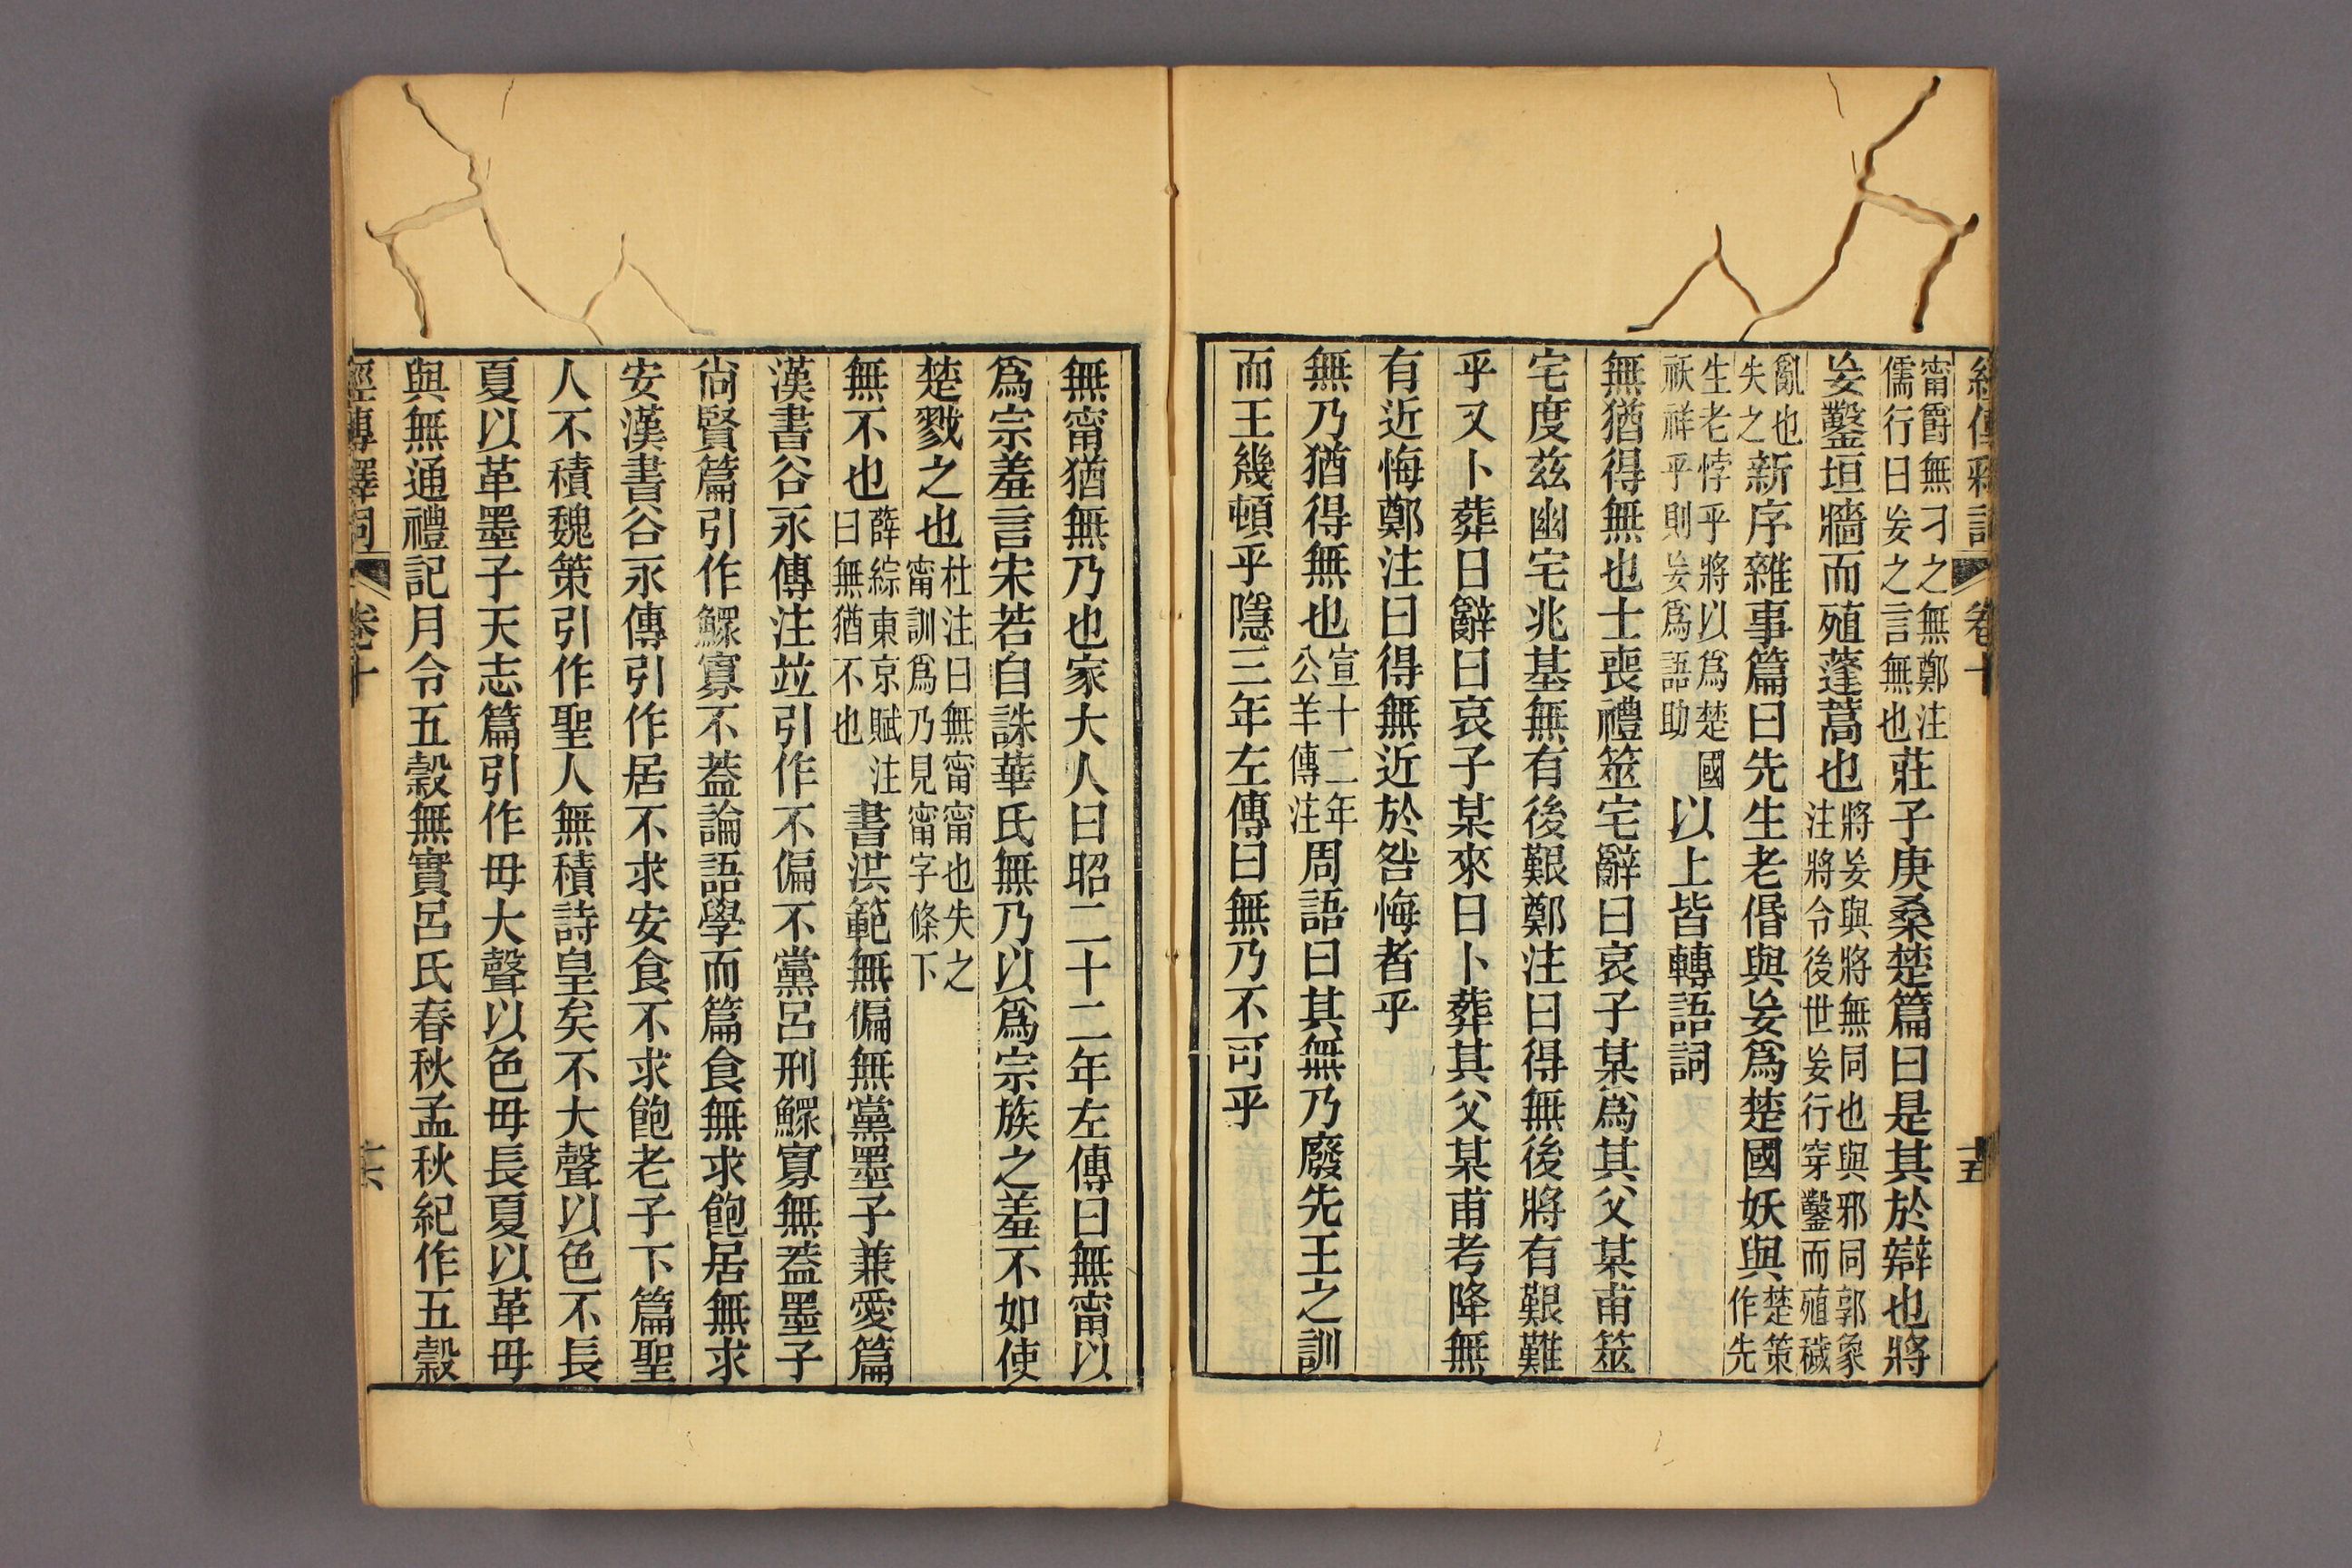 經傳釋詞 卷十 十五
甯爵無刁之無鄭注
儒行曰妄之言無也
莊子庚桑楚篇曰是其於辯也將
妄鑿垣牆而殖蓬蒿也
將妄與將無同也與邪同郭象
注將令後世妄行穿鑿而殖穢
亂也
失之
新序雜事篇曰先生老僭與妄爲楚國妖與
楚策
作先
生老悖乎將以爲楚國
祅祥乎則妄爲語助
以上皆轉語詞
無猶得無也士喪禮筮宅辭曰哀子某爲其父某甫筮
宅度茲幽宅兆基無有後艱鄭注曰得無後將有艱難
乎又卜葬日辭曰哀子某來日卜葬其父某甫考降無
有近悔鄭注曰得無近於咎悔者乎
無乃猶得無也
宣十二年
公羊傳注
周語曰其無乃廢先王之訓
而王幾頓乎隱三年左傳曰無乃不可乎
無甯猶無乃也家大人曰昭二十二年左傳曰無甯以
爲宗羞言宋若自誅華氏無乃以爲宗族之羞不如使
楚戮之也
杜注曰無甯甯也失之
甯訓爲乃見甯字條下
無不也
薛綜東京賦注
曰無猶不也
書洪範無偏無黨墨子兼愛篇
漢書谷永傳注竝引作不偏不黨呂刑鰥寡無蓋墨子
尙賢篇引作鰥寡不蓋論語學而篇食無求飽居無求
安漢書谷永傳引作居不求安食不求飽老子下篇聖
人不積魏策引作聖人無積詩皇矣不大聲以色不長
夏以革墨子天志篇引作毋大聲以色毋長夏以革毋
與無通禮記月令五穀無實呂氏春秋孟秋紀作五穀
經傳釋詞 卷十 十六